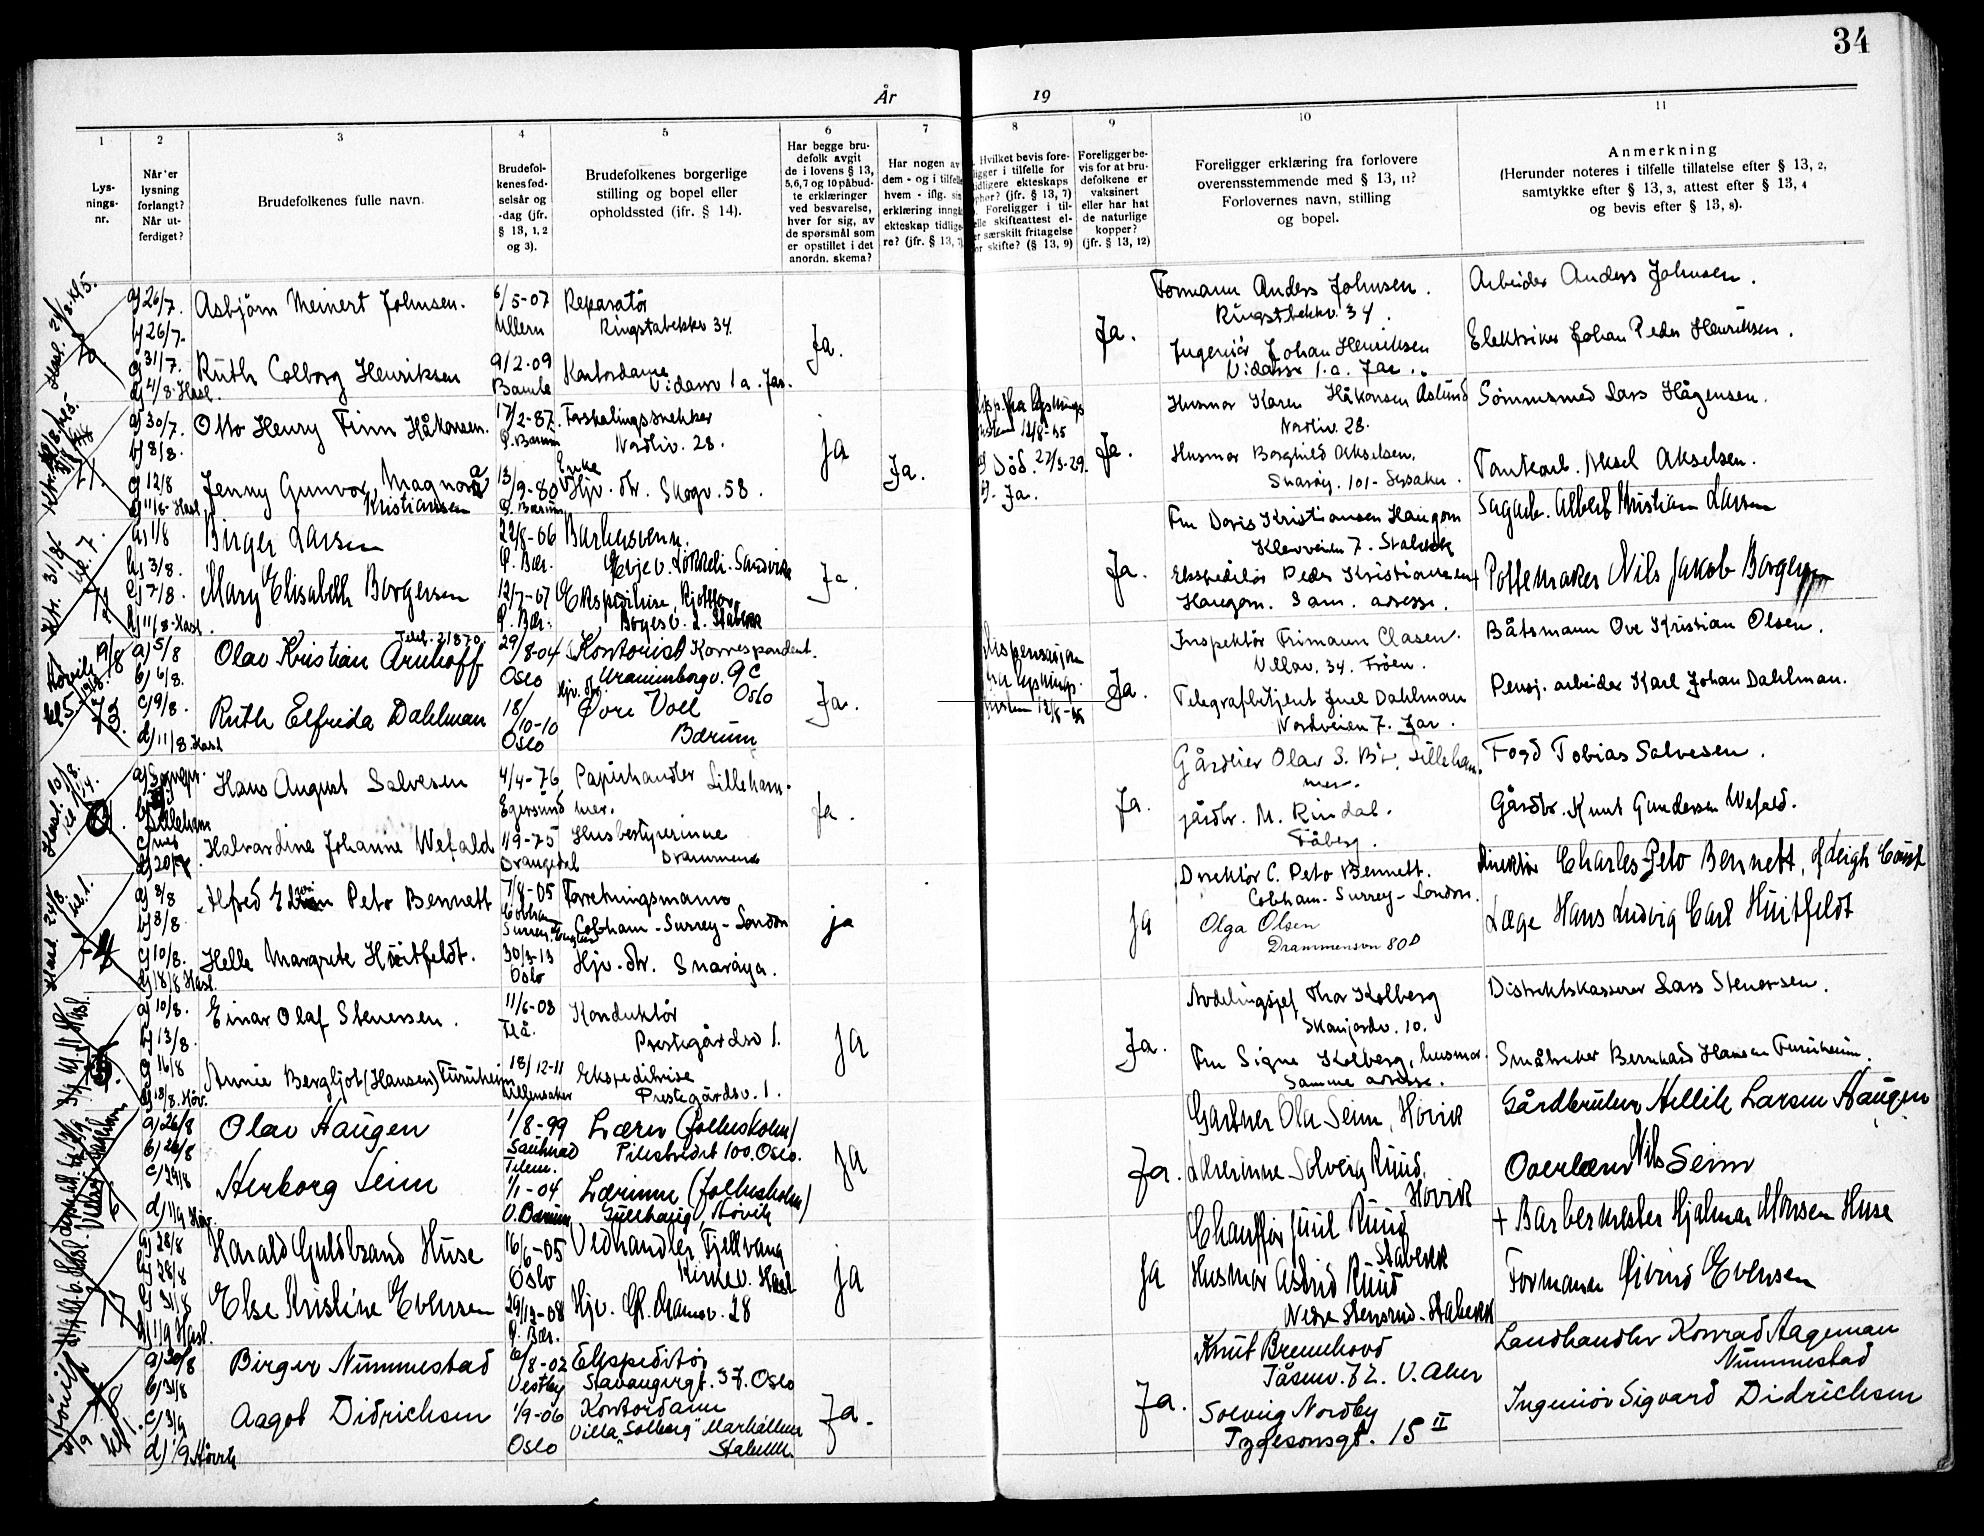 34
År 19
1
Lys-
nings-
nr.
2
Når er
lysning
forlangt?
Når ut-
ferdiget?
3
Brudefolkenes fulle navn.
4
Brudefol-
kenes fød-
selsår og
-dag (jfr.
§ 13, 1, 2
og 3).
5
Brudefolkenes borgerlige
stilling og bopel eller
opholdssted (ifr. § 14).
6
Har begge bru-
defolk avgit
de i lovens § 13,
5,6,7 og 10 påbud-
te erklæringer
ved besvarelse,
hver for sig, av
de spørsmål som
er opstillet i det
anordn. skema?
7
Har nogen av
dem - og i tilfelle
hvem - iflg. sin
erklæring inngå
ekteskap tidlige-
re? (jfr. § 13, 7)
8
Hvilket bevis fore-
ligger i tilfelle for
tidligere ekteskaps
ophør? (jfr. § 13, 7)
Foreligger i til-
felle skifteattest el-
er særskilt fritagelse
or skifte? (§ 13, 9)
9
Foreligger be-
vis for at bru-
defolkene er
vaksinert
eller har hat
de naturlige
kopper?
(jfr. § 13, 12)
10
Foreligger erklæring fra forlovere
overensstemmende med § 13, 11?
Forlovernes navn, stilling
og bopel.
11
Anmerkning
(Herunder noteres i tilfelle tillatelse efter § 13, 2,
samtykke efter § 13, 3, attest efter § 13, 4
og bevis efter § 13, 8).
a) 26/7. Asbjörn Meinert Johnsen. 6/5-07 Reparatör
b) 26/7. Ullern Ringstabekkv. 34.
Ja.
c) 31/7. Ruth Colborg Henriksen 9/2-09 Kontordame
d) 4/8. Hasl. Bamle Vidarsv 1a. Jar.
Ja.
Formann Anders Johnsen.
Ringstbekkv. 34.
Ingeniör Johan Henriksen
Vidarsv 1.a. Jar.
Arbeider Anders Johnsen.
Elektriker Johan Peder Henriksen.
a) 30/7. Otto Henry Finn Håkonsen. 17/2-87. Forskalingssnekker
b) 8/8. Ö. Bærum Nordliv. 28.
ja
c) 12/8 Jenny Gunvor, Magnora Kristiansen 13/9-80 Enke Hjv. dtr. Skogv. 58.
d) 11/8. Hasl. Ö. Bærum
Ja.
Död. 27/3-29.
Ja.
Ja.
Husmor Karen Håkonsen Aslund
Nordliv. 28.
Husmor Borghild Akselsen.
Snaröy. 101-
Sömmesmed Lars Hågensen.
Tomtearb. Aksel Akselsen.
a) 1/8 Birger Larsen 22/8-06 Barbersvenn.
b) 3/8. Ö. Bær. Evjev. Sandvika
Ja.
c) 7/8. Mary Elisabeth Borgersen 12/7-07 Ekspeditrise,
d) 11/8. Hasl. Ö. Bær. Stabekk
Ja.
Fru Doris Kristiansen Haugom
Klevveien 7. Stabekk
Ekspeditör Peder Kristiansen
Haugom. Sam. adresse.
Sagarb. Albert Kristian Larsen
+ Pottemaker Nils Jakob Borgersen
a) 5/8 Olav Kristian Arnhoff Telef. 21870 29/8-04 Kontorist Korrespondent.
b) 6/8. Oslo Uranienborgv. 9c Oslo
Ja.
c) 9/8. Ruth Elfrida Dahlman 18/10-10 Hjv. dtr. Övre Voll
d) 11/8. Hasl Oslo Bærum
dispensasjon
fra lysnings-
fristen 12/8-35
Ja.
Inspektör Frimann Clasen.
Ullav. 34. Fröen.
Telegrafbetjent Juel Dahlman
Nordveien 7. Jar.
Båtsmann Ove Kristian Olsen.
Pensj. arbeider Karl Johan Dahlman.
Hans August Salvesen 4/4-76 Papirhandler Lilleham-
Egersund mer.
Ja.
Halvardine Johanne Wefald 1/9-75 Husbestyrerinne
Drangedal Drammen
Ja.
Gårdeier Olav S. Bö, Lilleham-
mer.
gårdbr. M. Rindal.
Fåberg.
Fogd Tobias Salvesen.
Gårdbr. Knut Gundersen Wefald.
a) 8/8 Alfred Edwin Peto Bennett 7/8-05 Forretningsmann
b) 8/8. Cobham Surrey England Cobham-Surrey-London
ja
c) 10/8. Helle Margrete Huitfeldt. 30/3-13 Hjv. dtr. Snaröya.
d) 18/8 Hasl. Oslo
ja
Direktör C. Peto Bennett.
Cobham-Surrey-London.
Olga Olsen
Drammensvn 80D
Direktör Charles Peto Bennett, of Leigh Court
Læge Hans Ludvig Carl Huitfeldt
a) 10/8. Einar Olaf Stenersen. 11/6-08 Konduktör
b) 13/8. Flå. Prestegårdsv 1.
ja
c) 16/8 Annie Bergljot (Hansen) Furuheim 18/12-11 Ekspeditrise
d) 18/8. Höv. Ullensaker Prestegårdsv. 1.
Ja.
Avdelingssjef Thor Kolberg
Skanjordv. 10.
Fru Signe Kolberg, husmor.
Samme adresse.
Distriktskasserer Lars Stenersen.
Småbruker Bernhard Hansen Furuheim.
a) 26/8 Olav Haugen 1/8-99 Lærer (folkeskolen)
b) 26/8 Sauherad Telem. Pilestredet 100. Oslo.
ja
c) 29/8 Herborg Seim 1/1-04 Lærerinne (folkeskolen)
d) 1/9 Höv. V. Bærum Gullhaug, Hövik
Ja.
Gartner Ola Seim, Hövik
Lærerinne Solveig Ruud,
Hövik
Gårdbruker Hellik Larsen Haugen
Overlærer Nils Seim
a) 28/8 Harald Guldbrand Huse 16/6-05 Vedhandler Fjellvang
b) 28/8 Oslo Kirkev. Hasl
ja
c) 31/8 Else Kristine Evensen 29/12-08 Hjv. Gl. Dramsv. 28
d) 1/9 Hasl. Ö. Bær.
ja
Chauffør Juul Ruud
Stabekk
Husmor Astrid Ruud
Nedre Stensrud-Stabekk
+ Barbermester Hjalmar Monsen Huse
Formann Øivind Evensen
a) 30/8 Birger Nummestad 6/8-02 Ekspeditör
b) 31/8 Vestby Stavangergt. 37. Oslo
Ja.
c) 3/9 Aagot Didrichsen 1/9-06 Kontordame
d) 1/9 Hövik Oslo Villa "Solberg" Markalleen
Stabekk
Ja.
Knut Bremehovd
Tåsenv. 72. V. Aker
Solveig Nordby
Tygesonsgt. 15 II
Landhandler Konrad Aageman
Nummestad
Ingeniör Sigvard Didrichsen